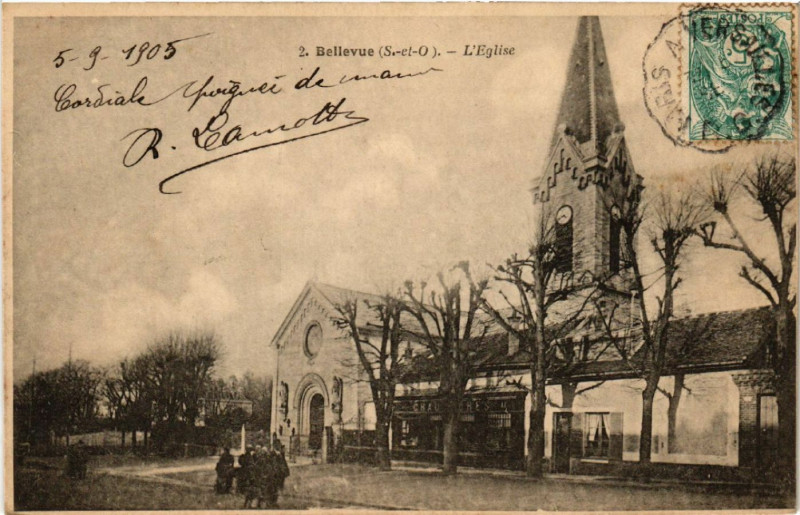 5-9-1905
2. Bellevue (S.-et-O). - L'Eglise
Cordiale poignée de main
R. Lamotte
POSTES
PARIS